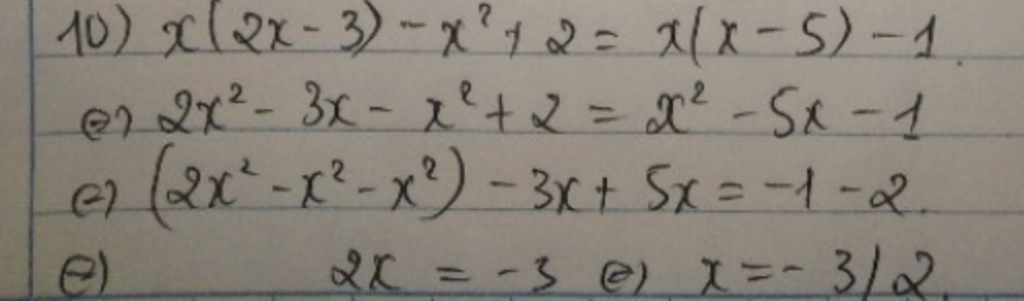 10) x(2x - 3) - x² + 2 = x(x - 5) - 1.
⇔ 2x² - 3x - x² + 2 = x² - 5x - 1
⇔ (2x² - x² - x²) - 3x + 5x = -1 - 2.
⇔ 2x = -3 ⇔ x = - 3/2.